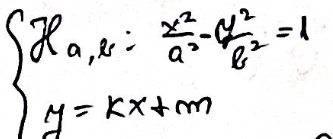 ℋ a,b : x²/a² - y²/b² = 1
y = kx + m